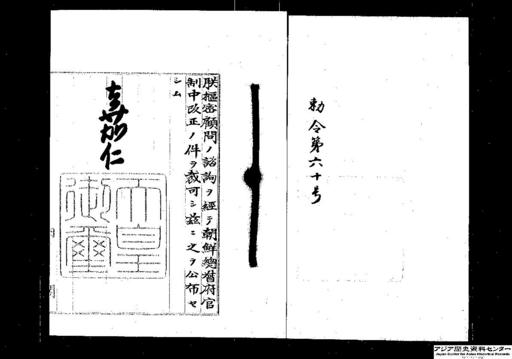 勅令第六十号
朕樞密顧問ノ諮詢ヲ經テ朝鮮總督府官
制中改正ノ件ヲ裁可シ茲ニ之ヲ公布セ
シム
嘉仁
天皇
御璽
アジア歴史資料センター
Japan Center for Asian Historical Records